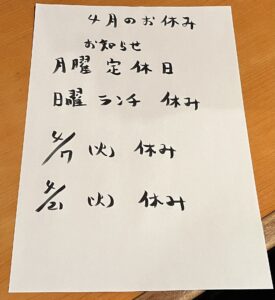 4月のお休み
お知らせ
月曜 定休日
日曜 ランチ 休み
4/7 (火) 休み
4/21 (火) 休み